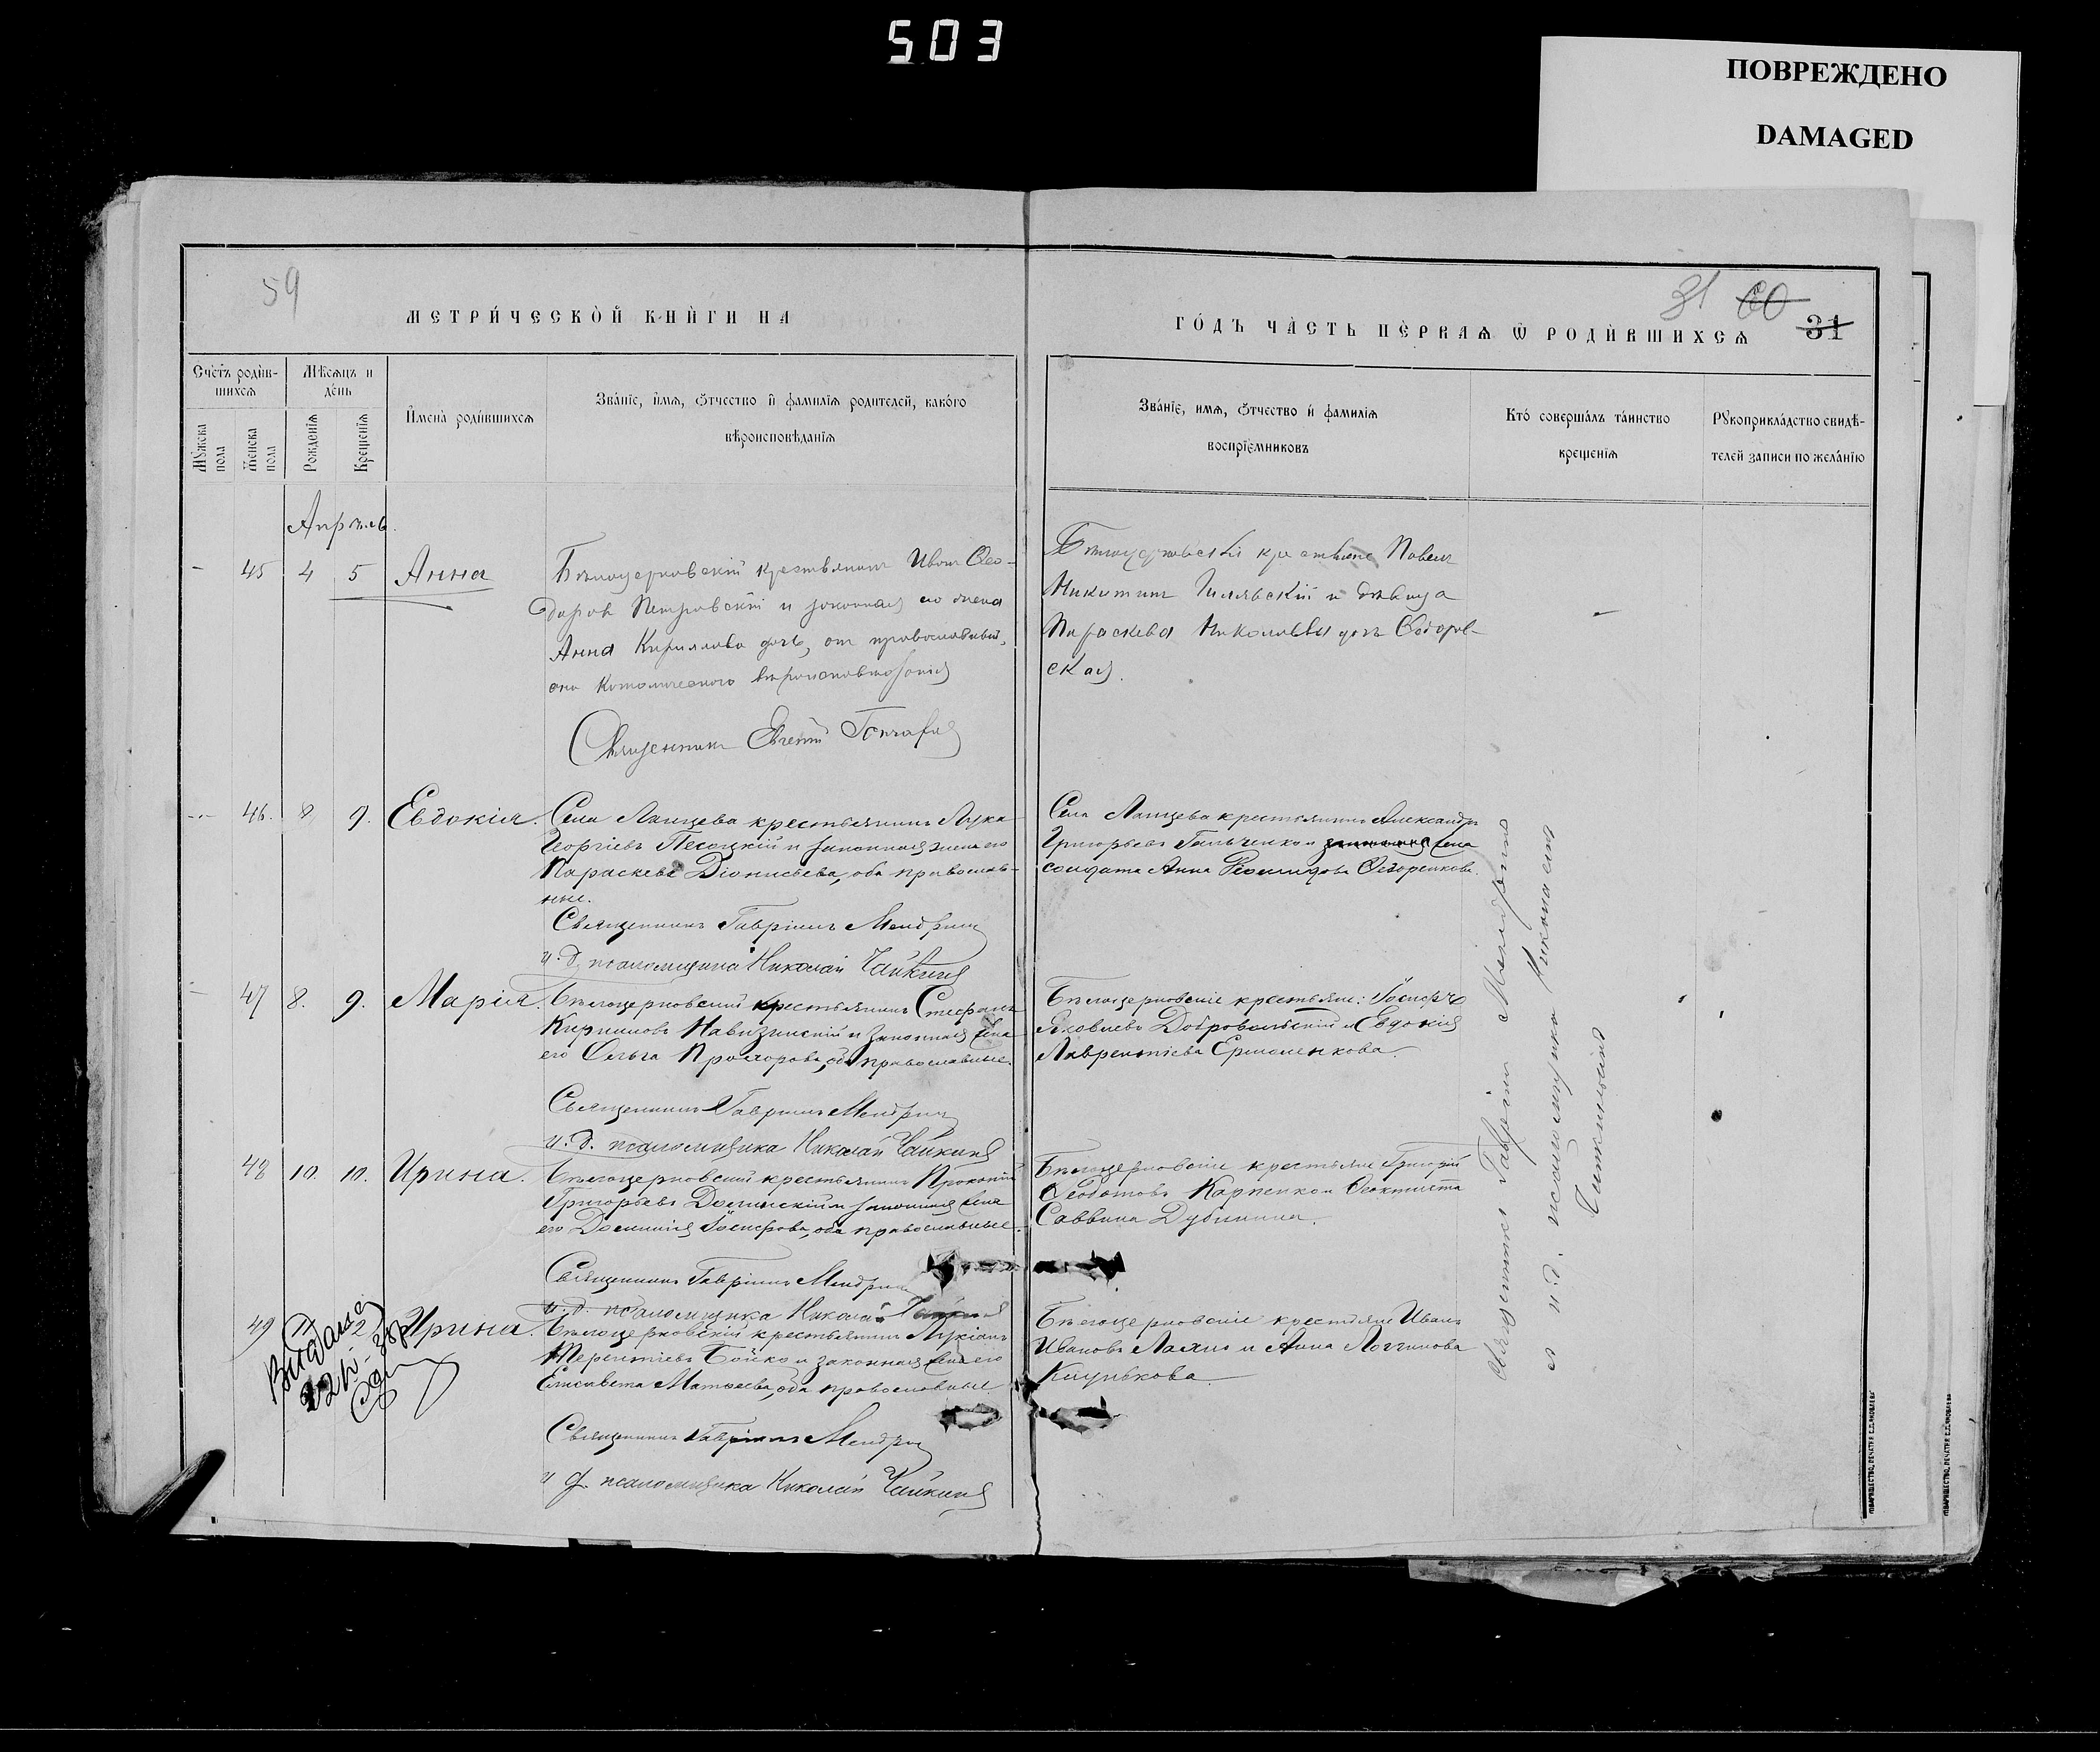 503
ПОВРЕЖДЕНО
DAMAGED
59
МЕТРИ́ЧЕСКОЙ КНИ́ГИ НА
31 60
ГО́ДЪ ЧА́СТЬ ПЕ́РВАѦ Ѡ РОДИ́ВШИХСѦ 31
Сче́тъ роди́в-
шихсѧ
Мѣ́сѧцъ и
де́нь
Мꙋ́жска
пола
Же́нска
пола
Рожде́нїѧ
Креще́нїѧ
И҆мена̀ роди́вшихсѧ
Зва́нїе, и҆́мѧ, ѻ҆́тчество и҆ фамилїѧ родителей, како́го
вѣроисповѣданїѧ
Зва́нїе, имѧ, ѻ҆́тчество и҆ фамилїѧ
воспрїемниковъ
Кто́ соверша́лъ та́инство
креще́нїѧ
Рꙋкоприкла́дство свидѣ́-
телей записи по жела́нїю
Апрѣль
- 45 4 5 Анна
Бѣлоцерковскій крестьянинъ Иванъ Ѳео-
доровъ Петровскій и законная его жена
Анна Кириллова дочь, онъ православный,
она католическаго вѣроисповѣданія
Священникъ Евгеній
Бѣлоцерковскій крестьянинъ Павелъ
Никитинъ и дѣвица
Параскева Николаева дочь Ѳедоров-
ская.
46. 8. 9. Евдокія.
Села крестьянинъ Лука
Георгіевъ Песоцкій и законная жена его
Параскева Діонисіева, оба православ-
ные.
Священникъ Гавріилъ Мендрин
и. д. псаломщика Николай Чайкинъ
Села крестьянинъ Александръ
Григорьевъ Гальченко и законная жена
солдата Анна Ѳедоренкова.
47 8. 9. Марія.
Бѣлоцерковскій крестьянинъ Стефанъ
Кирилловъ и законная жена
его Ольга Прохорова, оба православные.
Священникъ Гавріилъ Мендрин
и. д. псаломщика Николай Чайкинъ
Бѣлоцерковскіе крестьяне: Іосифъ
Яковлевъ Добровольскій и Евдокія
Лаврентіева Ермоленкова.
48 10. 10. Ирина.
Бѣлоцерковскій крестьянинъ Прокопій
Григорьевъ и законная жена
его Домникія Іосифова, оба православные.
Священникъ Гавріилъ Мендрин
и. д. псаломщика Николай Чайкинъ
Бѣлоцерковскіе крестьяне Григорій
Ѳеодотовъ Карпенко и Ѳеоктиста
Саввина Дубинина.
49 11 12 Ирина.
Видано
Бѣлоцерковскій крестьянинъ Лукіанъ
Терентіевъ Бойко и законная жена его
Елисавета Матѳеева, оба православные
Священникъ Гавріилъ Мендрин
и д. псаломщика Николай Чайкинъ
Бѣлоцерковскіе крестьяне Иванъ
Ивановъ и Анна Логгинова
Священникъ Гавріилъ
и. д. псаломщика Николаемъ
Чайкинымъ